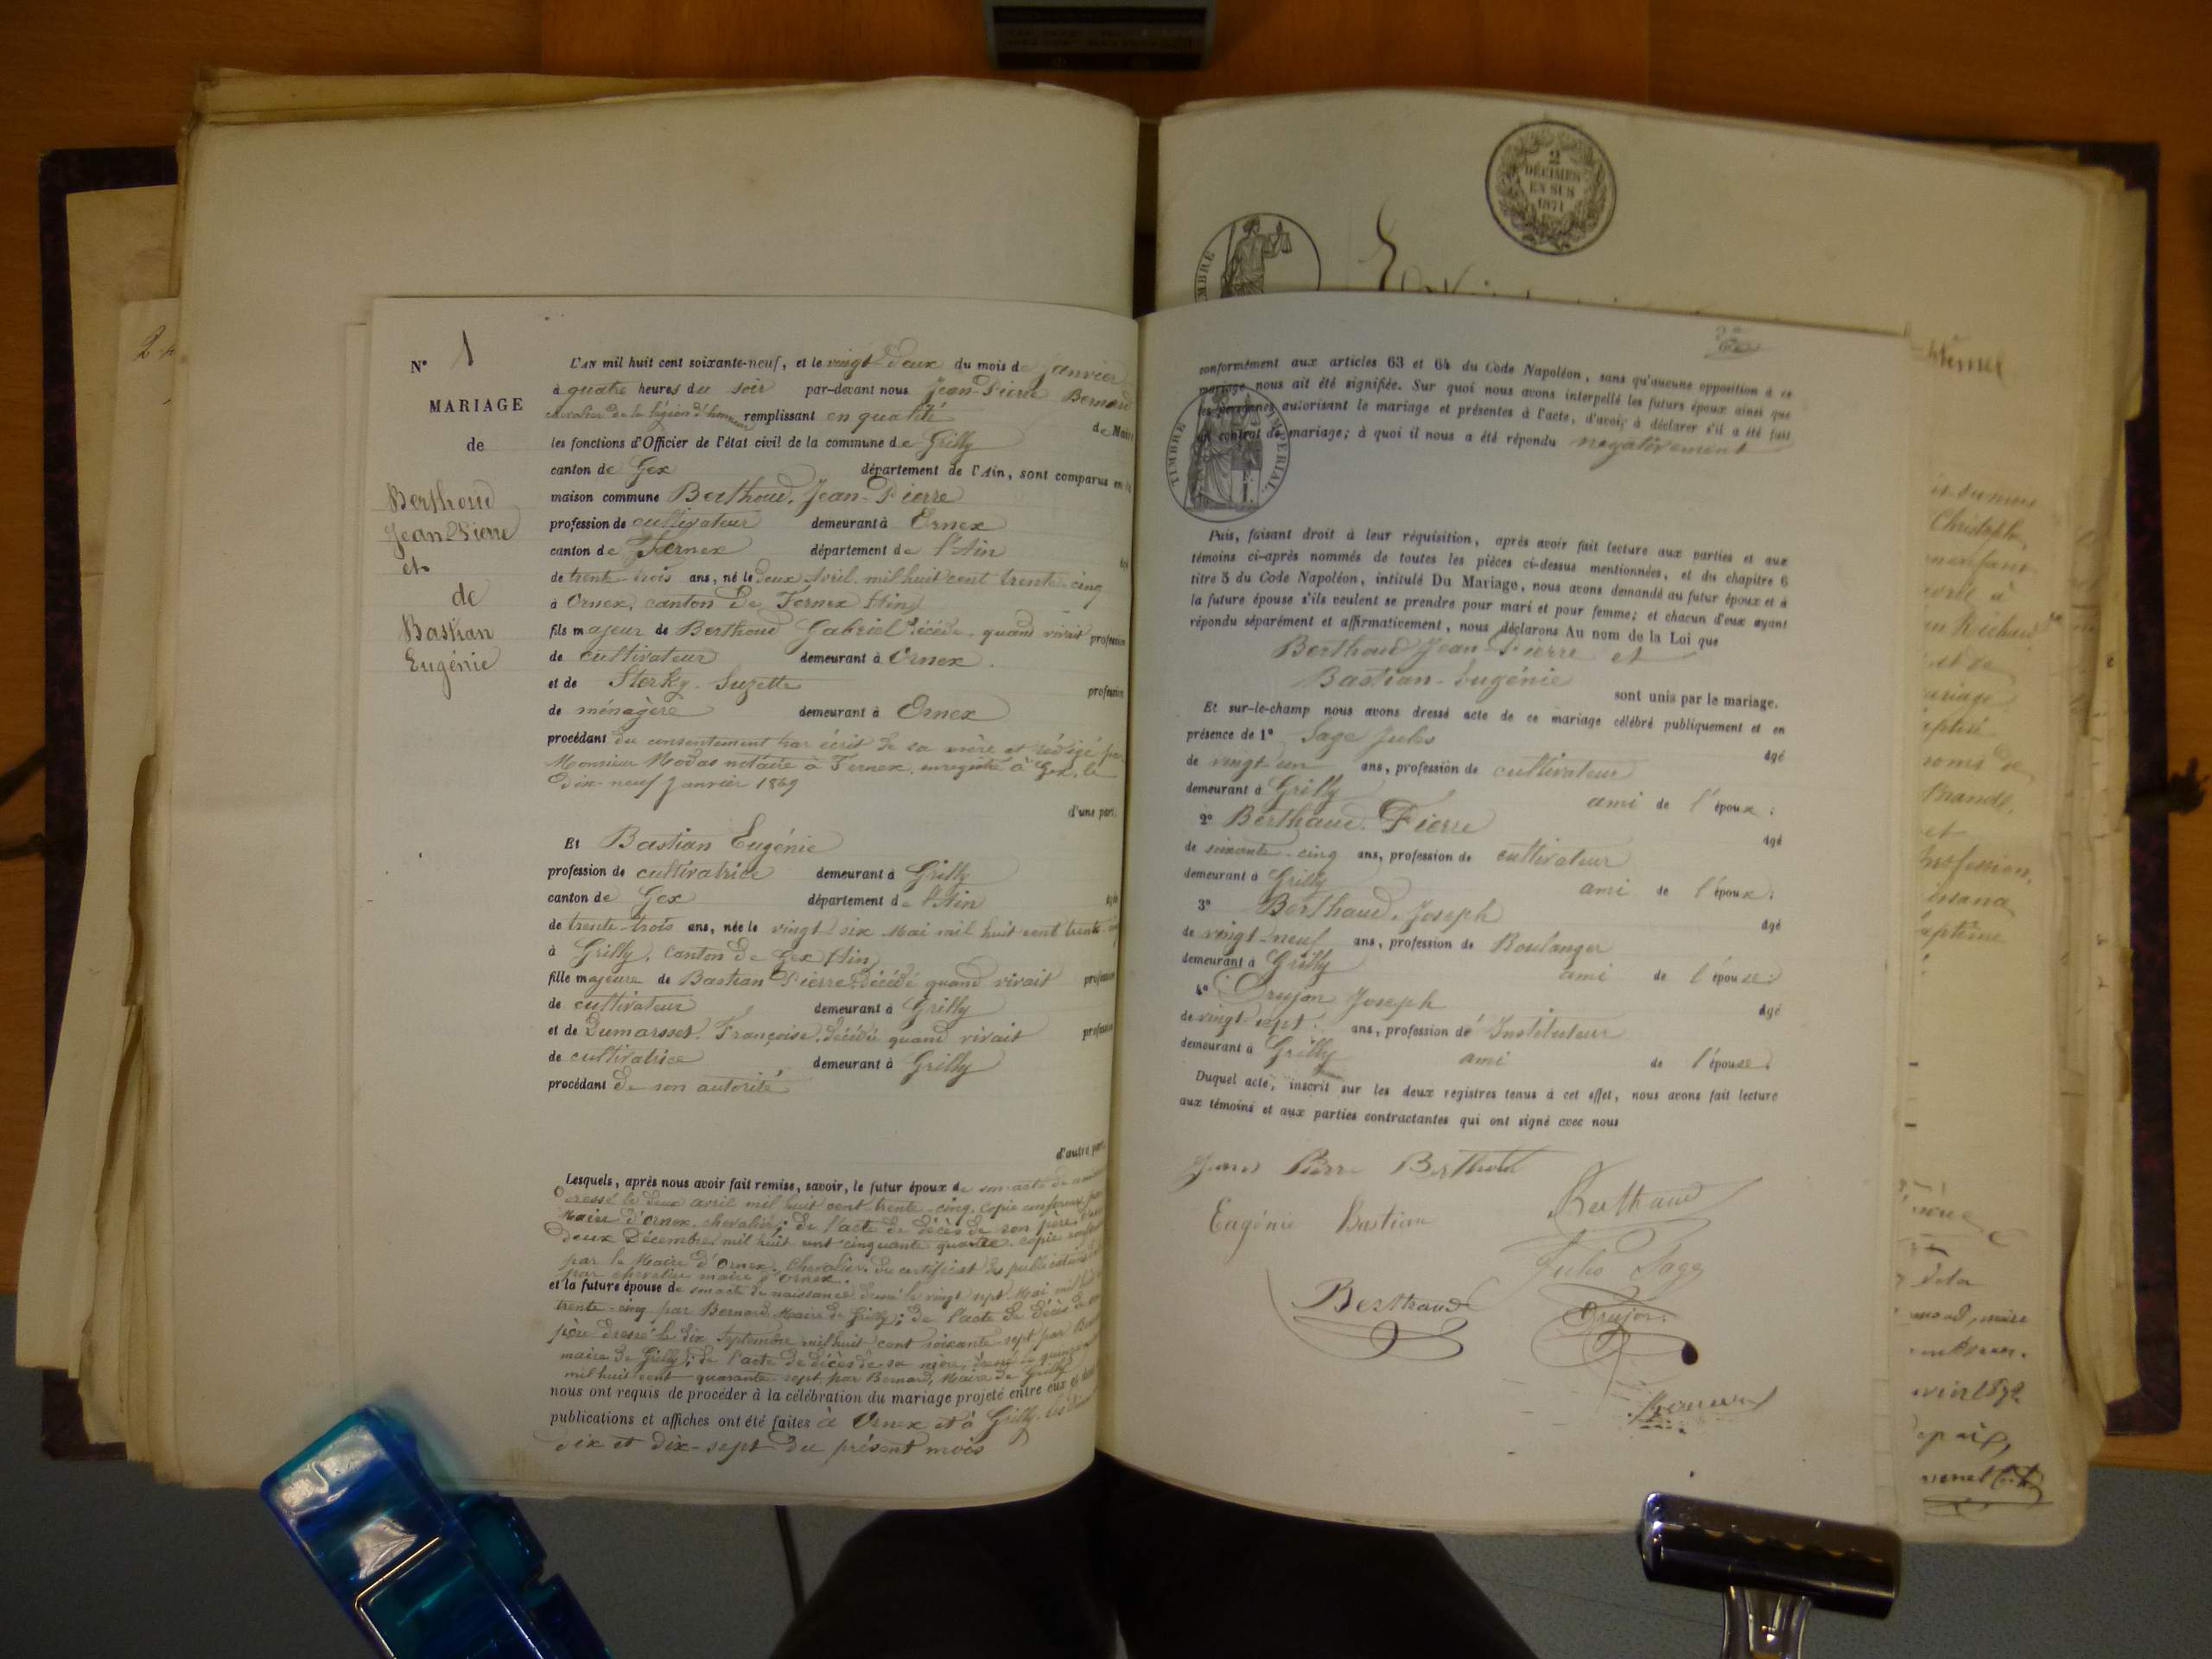 N° 1
MARIAGE
de
Berthoud
Jean Pierre
et
de
Bastian
Eugénie
L'AN mil huit cent soixante-neuf, et le vingt deux du mois de Janvier
à quatre heures du soir par-devant nous Jean-Pierre Bernard
chevalier de la légion d'honneur remplissant en qualité de Maire
les fonctions d'Officier de l'état civil de la commune de Grilly
canton de Gex département de l'Ain, sont comparus en la
maison commune Berthoud, Jean-Pierre
profession de cultivateur demeurant à Ornex
canton de Fernex département de l'Ain
de trente-trois ans, né le deux Avril mil huit cent trente-cinq
à Ornex, canton de Fernex Ain
fils majeur de Berthoud Gabriel décédé, quand vivait profession
de cultivateur demeurant à Ornex.
et de Sterky Suzette profession
de ménagère demeurant à Ornex
procédant du consentement par écrit de sa mère et rédigé par
Monsieur Modas notaire à Fernex, enregistré à Gex, le
Dix-neuf Janvier 1869
d'une part.
Et Bastian Eugénie
profession de cultivatrice demeurant à Grilly
canton de Gex département de l'Ain
de trente-trois ans, née le vingt-six Mai mil huit cent trente
à Grilly, canton de Gex Ain
fille majeure de Bastian Pierre décédé quand vivait profession
de cultivateur demeurant à Grilly
et de Dumarsset Françoise, décédée quand vivait profession
de cultivatrice demeurant à Grilly
procédant de son autorité
d'autre part.
Lesquels, après nous avoir fait remise, savoir, le futur époux de son acte de
dressé le deux avril mil huit cent trente-cinq, copie conforme par
Maire d'Ornex, chevalier; de l'acte de décès de son père
deux Décembre mil huit cent cinquante quatre copie
par le Maire d'Ornex, Chevalier, du certificat des publications
par chevalier maire d'Ornex.
et la future épouse de son acte de naissance dressé le vingt sept Mai mil
trente-cinq par Bernard, Maire de Grilly; de l'acte de décès de
père dressé le dix Septembre mil huit cent soixante-sept par
maire de Grilly; de l'acte de décès de sa mère, dressé le quinze
mil huit cent quarante sept par Bernard, Maire de Grilly
nous ont requis de procéder à la célébration du mariage projeté entre eux et dont
publications et affiches ont été faites à Ornex et à Grilly, les
dix et dix-sept du présent mois
2
DÉCIMES
EN SUS
1871
conformément aux articles 63 et 64 du Code Napoléon, sans qu'aucune opposition à ce
mariage nous ait été signifiée. Sur quoi nous avons interpellé les futurs époux ainsi que
les personnes autorisant le mariage et présentes à l'acte, d'avoir à déclarer s'il a été fait
un contrat de mariage; à quoi il nous a été répondu négativement
TIMBRE IMPÉRIAL
Puis, faisant droit à leur réquisition, après avoir fait lecture aux parties et aux
témoins ci-après nommés de toutes les pièces ci-dessus mentionnées, et du chapitre 6
titre 5 du Code Napoléon, intitulé Du Mariage, nous avons demandé au futur époux et à
la future épouse s'ils veulent se prendre pour mari et pour femme; et chacun d'eux ayant
répondu séparément et affirmativement, nous déclarons Au nom de la Loi que
Berthoud Jean-Pierre et
Bastian-Eugénie sont unis par le mariage.
Et sur-le-champ nous avons dressé acte de ce mariage célébré publiquement et en
présence de 1° Sage Jules âgé
de vingt un ans, profession de cultivateur
demeurant à Grilly ami de l'époux;
2° Berthaud Pierre âgé
de soixante-cinq ans, profession de cultivateur
demeurant à Grilly ami de l'époux;
3° Berthaud, Joseph âgé
de vingt-neuf ans, profession de Boulanger
demeurant à Grilly ami de l'épouse;
4° Drujon Joseph âgé
de vingt-sept ans, profession de Instituteur
demeurant à Grilly ami de l'épouse.
Duquel acte, inscrit sur les deux registres tenus à cet effet, nous avons fait lecture
aux témoins et aux parties contractantes qui ont signé avec nous
Jean Pierre Berthoud
Berthaud
Eugénie Bastian
Jules Sage
Berthaud
Drujon
Bernard